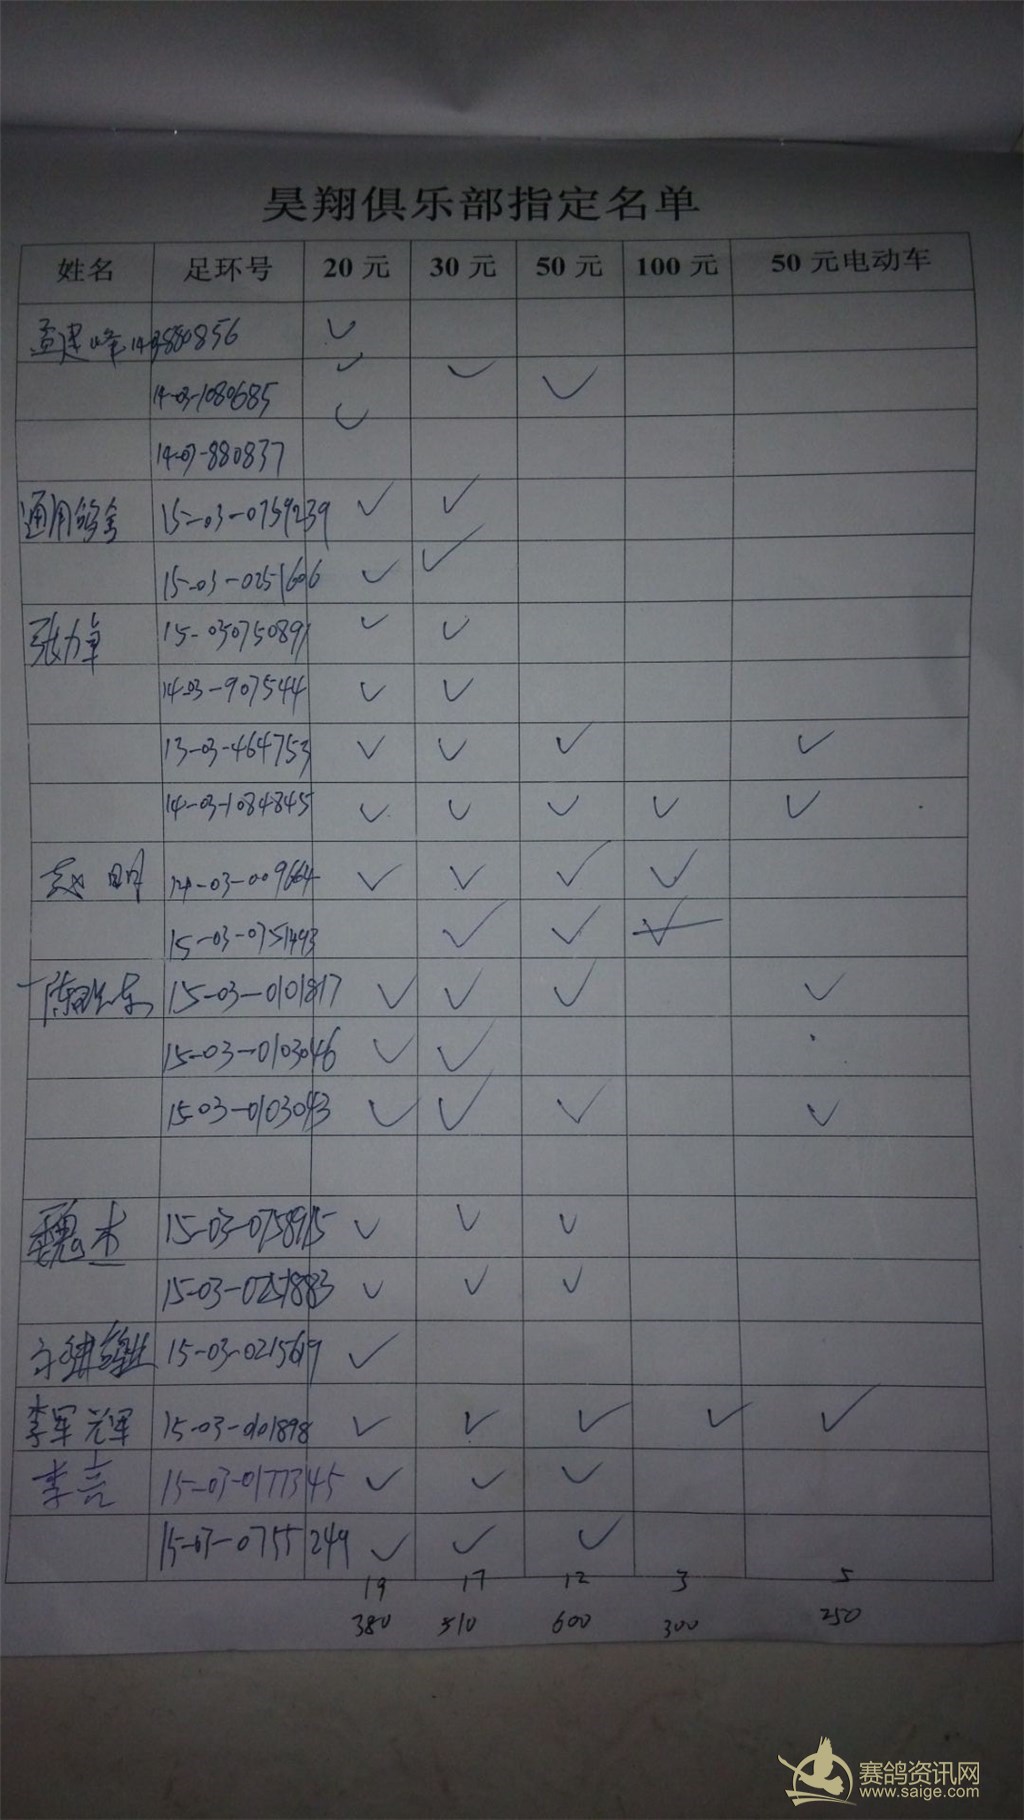 昊翔俱乐部指定名单
姓名 足环号 20元 30元 50元 100元 50元电动车
孟建峰 14-03-880856 ✓
14-03-1080685 ✓ ✓ ✓
14-03-880837 ✓
通用鸽舍 15-03-0759239 ✓ ✓
15-03-0251606 ✓ ✓
张力卓 15-030750891 ✓ ✓
14-03-907544 ✓ ✓
13-03-464753 ✓ ✓ ✓ ✓
14-03-1084845 ✓ ✓ ✓ ✓ ✓
赵明 14-03-009664 ✓ ✓ ✓ ✓
15-03-0751493 ✓ ✓ ✓
15-03-0101817 ✓ ✓ ✓ ✓
15-03-0103046 ✓ ✓
15-03-0103043 ✓ ✓ ✓ ✓
魏杰 15-03-0758915 ✓ ✓ ✓
15-03-0251883 ✓ ✓ ✓
15-03-0215619 ✓
李军辉 15-03-0101898 ✓ ✓ ✓ ✓ ✓
李亮 15-03-0177345 ✓ ✓ ✓
15-03-0755249 ✓ ✓ ✓
19 17 12 3 5
380 510 600 300 250
赛鸽资讯网
www.saige.com